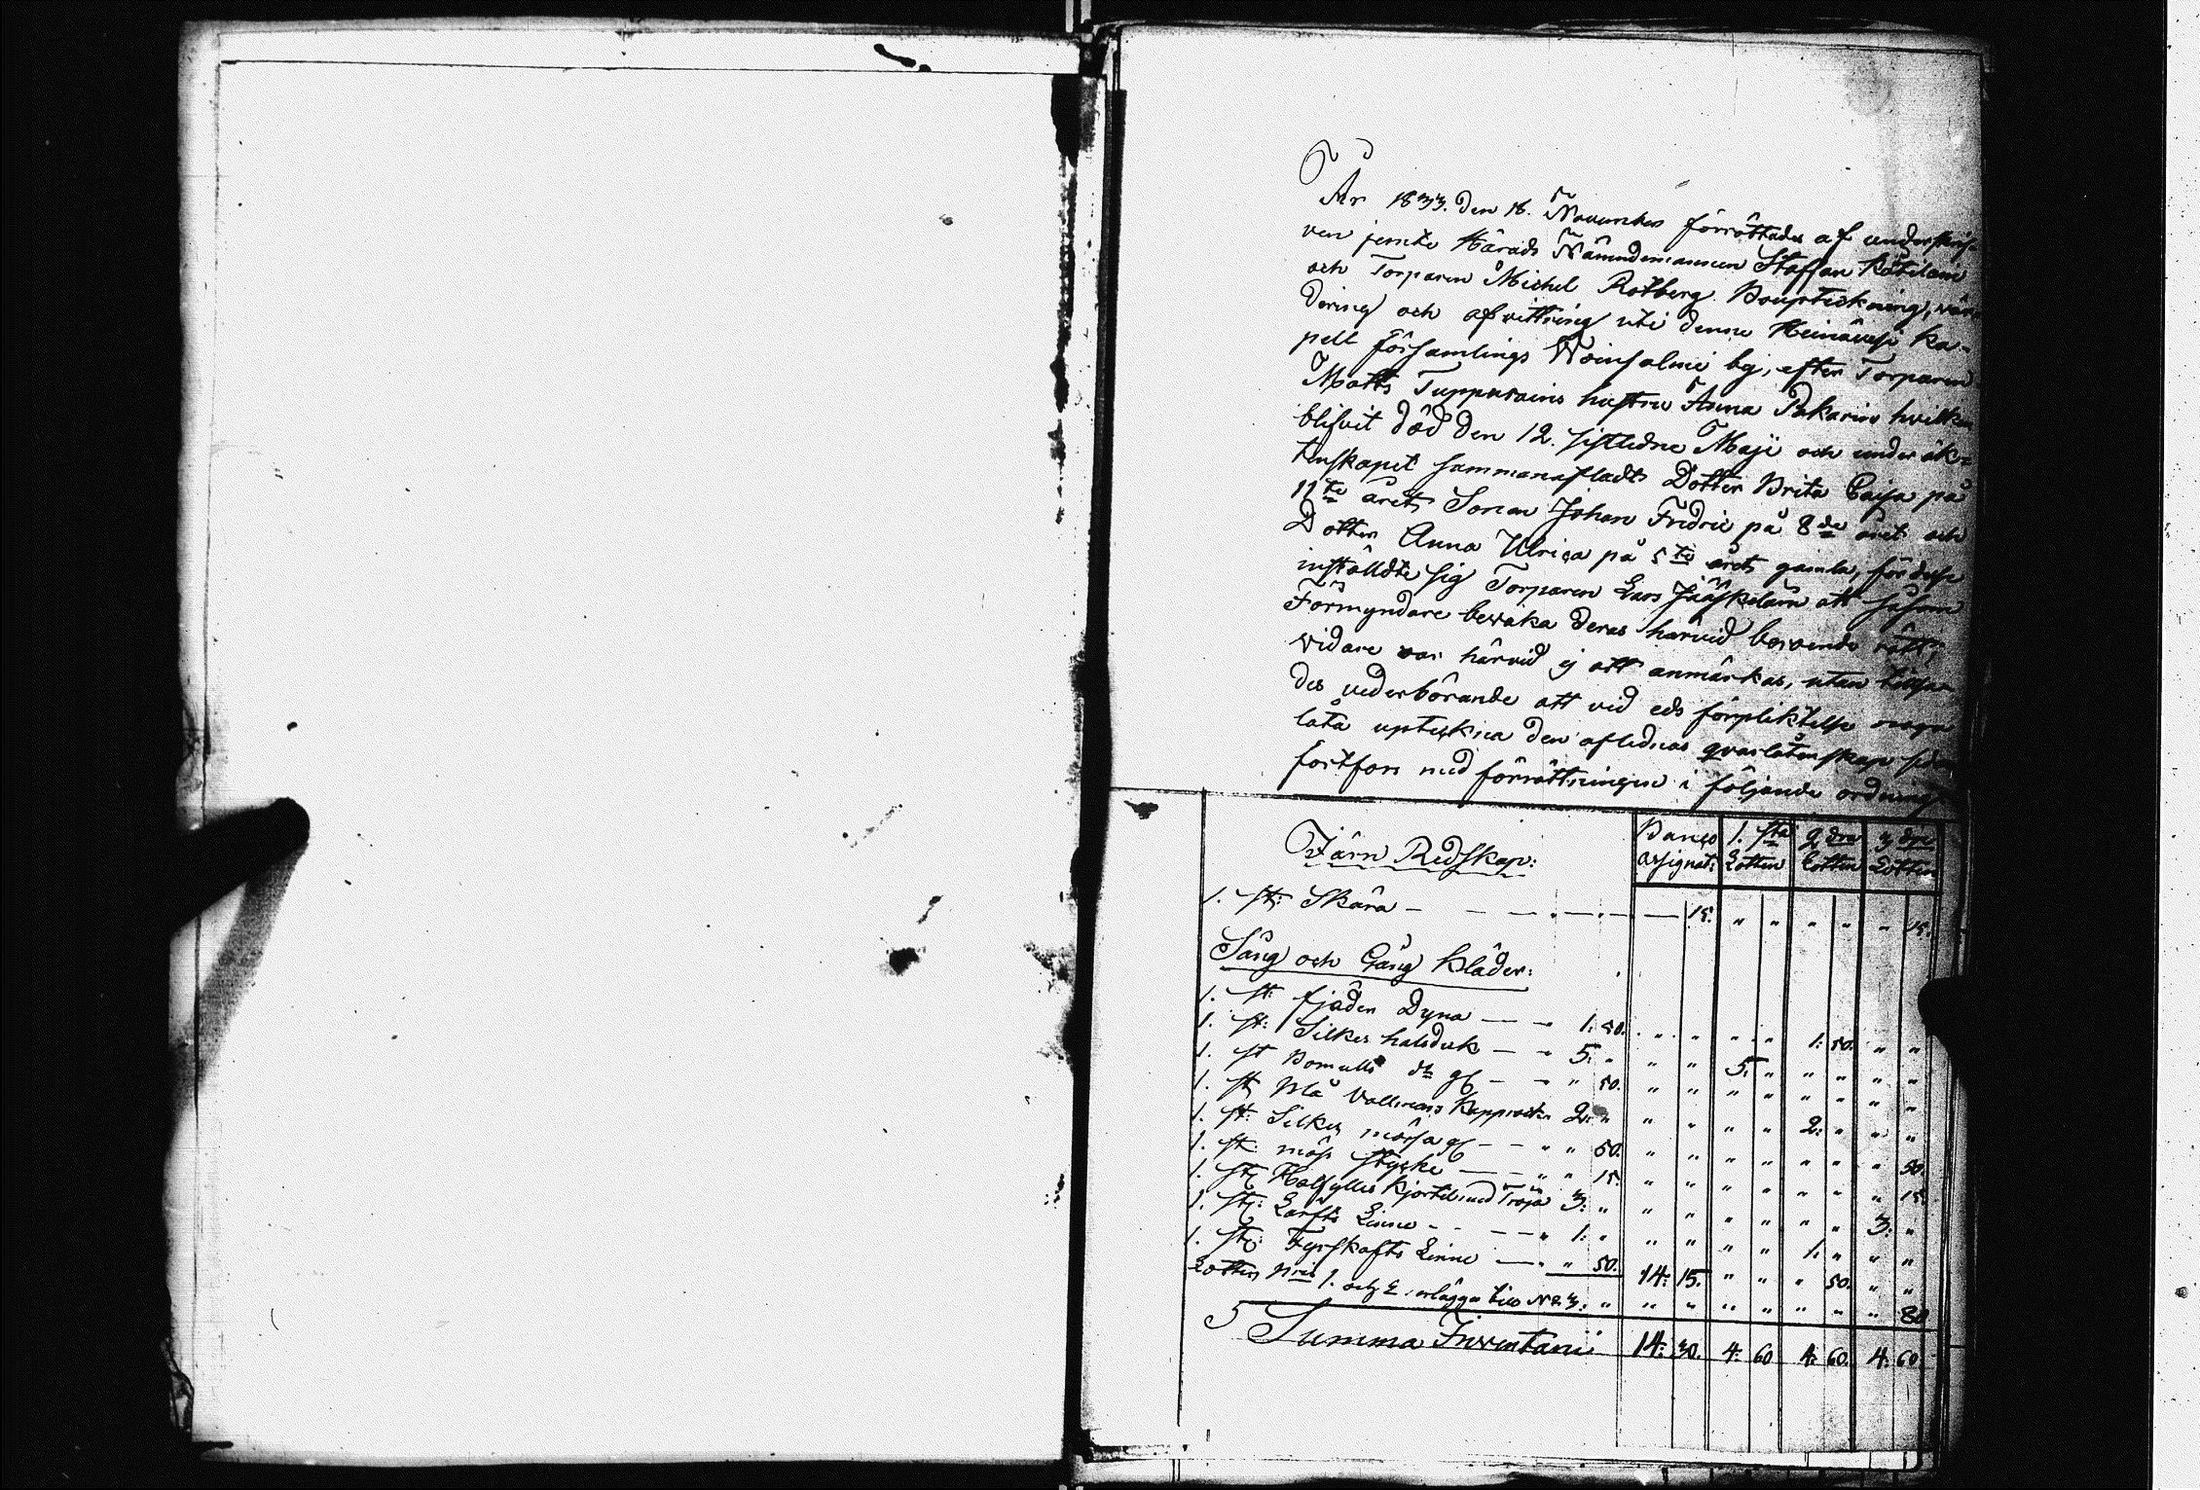 År 1833. den 18. November förrättades af underskrif-
ven jemte Härads Nämndemannen Staffan Kötilain
och Torparen Michel Rotberg Bouptekning, vär-
dering och afvittring uti denne Heinävesi Ka-
pell församlings Woinsalmi by, efter Torparen
Matts Tuppurains hustru Anna Pakarin hvilken
blifvit död den 12. sistledne Maji och under äk-
tenskapet sammanafladt Dotter Brita Caisa på
11te året, Sonen Johan Fredric på 8de året och
Dotter Anna Ulrica på 5te året gamla, för desse
inställdte sig Torparen Lars Jääskelain att såsom
Förmyndare bevaka deras härvid beroende rätt;
vidare var härvid ej att anmärkas, utan tillsa-
des vederbörande att vid eds förpliktelse noga
låta uptekna den aflednas qvarlåtenskap som
fortfors med förrättningen i följande ordning
Banco assignat: 1. sta Lotten 2 dra Lotten 3 dje Lotten
Järn Redskap:
1. st: Skära — — — 15. " " " " " 15.
Säng och Gång Kläder:
1. st: fjäder Dyna — " 1: 50. " " " " 1: 50. " "
1. st: Silkes halsduk — " 5: " " " 5: " " " " "
1. st Bomulls do gl — " " 50. " " " " " " " "
1. st Blå Vallmans Kapprock 2: " " " " " 2: " " "
1. st: Silkes mössa gl — " " 50. " " " " " " " 50.
1. st: möss stycke — " " 15. " " " " " " " 15.
1. st: Halfylles Kjortel med Tröja 3: " " " " " " " 3: "
1. st: Lärfts Linne — " 1: " " " " " 1: " " "
1. st: Fyrskafts Linne — " " 50. 14: 15. " " " 50. " "
Lotten Nris 1. och 2. erlägga till No 3. " " " " " " " " 80
Summa Inventarii 14: 30. 4: 60 4: 60. 4: 60.